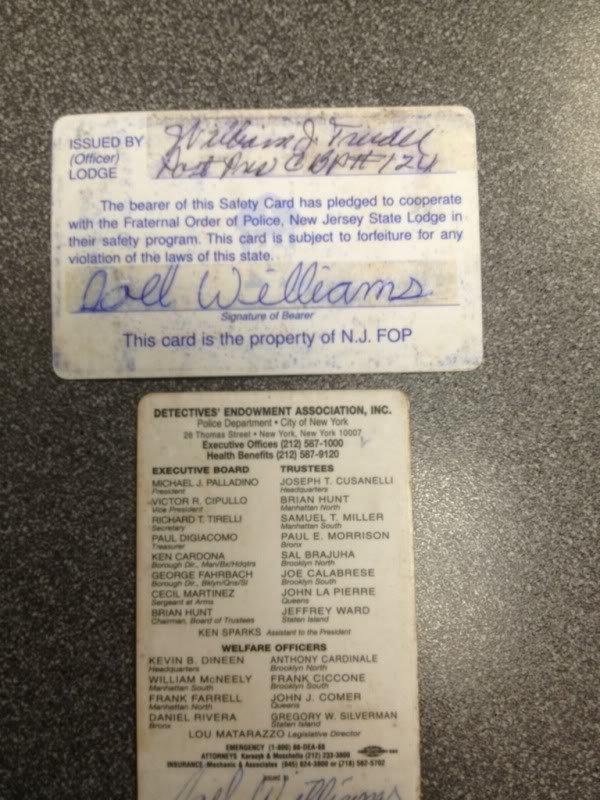 ISSUED BY William J. Trudell
(Officer)
LODGE Past Pres CBP# 124
The bearer of this Safety Card has pledged to cooperate
with the Fraternal Order of Police, New Jersey State Lodge in
their safety program. This card is subject to forfeiture for any
violation of the laws of this state.
Joell Williams
Signature of Bearer
This card is the property of N.J. FOP
DETECTIVES' ENDOWMENT ASSOCIATION, INC.
Police Department • City of New York
26 Thomas Street • New York, New York 10007
Executive Offices (212) 587-1000
Health Benefits (212) 587-9120
EXECUTIVE BOARD
MICHAEL J. PALLADINO
President
VICTOR R. CIPULLO
Vice President
RICHARD T. TIRELLI
Secretary
PAUL DIGIACOMO
Treasurer
KEN CARDONA
Borough Dir., Man/Bx/Hdqtrs
GEORGE FAHRBACH
Borough Dir., Bklyn/Qns/SI
CECIL MARTINEZ
Sergeant at Arms
BRIAN HUNT
Chairman, Board of Trustees
TRUSTEES
JOSEPH T. CUSANELLI
Headquarters
BRIAN HUNT
Manhattan North
SAMUEL T. MILLER
Manhattan South
PAUL E. MORRISON
Bronx
SAL BRAJUHA
Brooklyn North
JOE CALABRESE
Brooklyn South
JOHN LA PIERRE
Queens
JEFFREY WARD
Staten Island
KEN SPARKS Assistant to the President
WELFARE OFFICERS
KEVIN B. DINEEN
Headquarters
WILLIAM McNEELY
Manhattan South
FRANK FARRELL
Manhattan North
DANIEL RIVERA
Bronx
ANTHONY CARDINALE
Brooklyn North
FRANK CICCONE
Brooklyn South
JOHN J. COMER
Queens
GREGORY W. SILVERMAN
Staten Island
LOU MATARAZZO Legislative Director
EMERGENCY (1-800) 88-DEA-88
ATTORNEYS Karasyk & Moschella (212) 233-3800
INSURANCE: Mechanic & Associates (845) 624-3800 or (718) 562-5702
ISSUED TO
Joell Williams